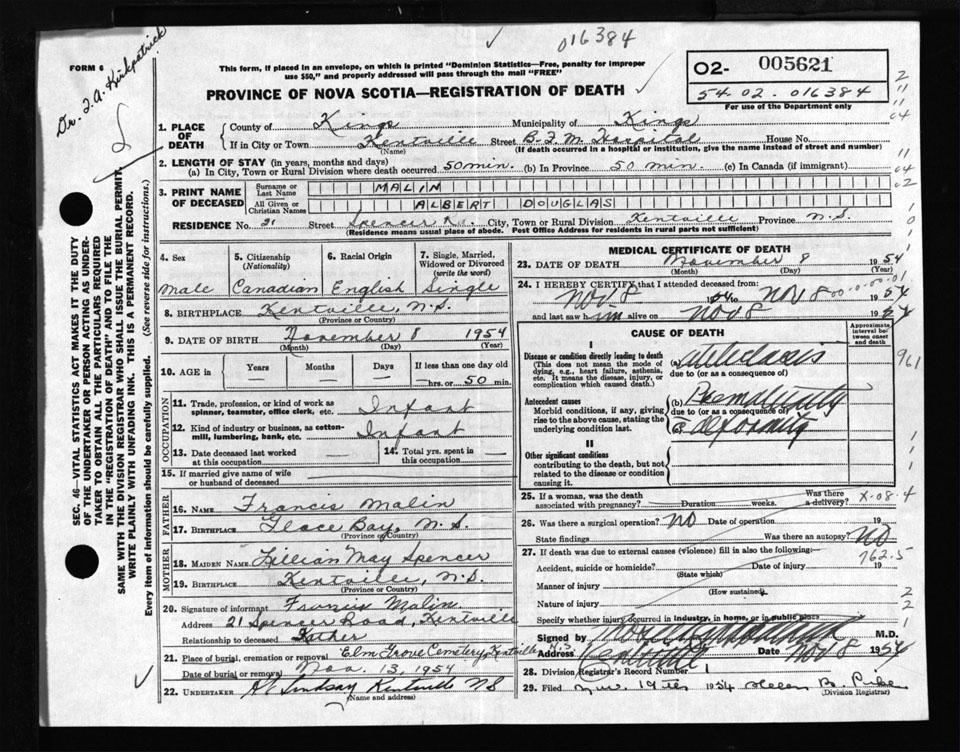 016384
FORM 6
Dr. J. A. Kirkpatrick
This form, if placed in an envelope, on which is printed "Dominion Statistics—Free, penalty for improper
use $50," and properly addressed will pass through the mail "FREE"
O2- 005621
54-02-016384
For use of the Department only
PROVINCE OF NOVA SCOTIA—REGISTRATION OF DEATH
SEC. 46—VITAL STATISTICS ACT MAKES IT THE DUTY
OF THE UNDERTAKER OR PERSON ACTING AS UNDER-
TAKER TO OBTAIN ALL THE PARTICULARS REQUIRED
IN THE "REGISTRATION OF DEATH" AND TO FILE THE
SAME WITH THE DIVISION REGISTRAR WHO SHALL ISSUE THE BURIAL PERMIT.
WRITE PLAINLY WITH UNFADING INK. THIS IS A PERMANENT RECORD.
Every item of information should be carefully supplied. (See reverse side for instructions.)
1. PLACE OF DEATH
County of Kings Municipality of Kings
If in City or Town Kentville Street B.F.M. Hospital House No.
(Name) (If death occurred in a hospital or institution, give the name instead of street and number)
2. LENGTH OF STAY (in years, months and days)
(a) In City, Town or Rural Division where death occurred 50 min. (b) In Province 50 min. (c) In Canada (if immigrant)
3. PRINT NAME OF DECEASED
Surname or Last Name MALIN
All Given or Christian Names ALBERT DOUGLAS
RESIDENCE No. 21 Street Spencer Rd. City, Town or Rural Division Kentville Province N.S.
(Residence means usual place of abode. Post Office Address for residents in rural parts not sufficient)
4. Sex Male
5. Citizenship (Nationality) Canadian
6. Racial Origin English
7. Single, Married, Widowed or Divorced (write the word) Single
8. BIRTHPLACE Kentville, N.S.
(Province or Country)
9. DATE OF BIRTH November 8 1954
(Month) (Day) (Year)
10. AGE in Years — Months — Days — If less than one day old — hrs. or 50 min.
OCCUPATION
11. Trade, profession, or kind of work as spinner, teamster, office clerk, etc. Infant
12. Kind of industry or business, as cotton-mill, lumbering, bank, etc. Infant
13. Date deceased last worked at this occupation —
14. Total yrs. spent in this occupation —
15. If married give name of wife or husband of deceased
FATHER
16. Name Francis Malin
17. BIRTHPLACE Glace Bay, N.S.
(Province or Country)
MOTHER
18. MAIDEN NAME Lillian May Spencer
19. BIRTHPLACE Kentville, N.S.
(Province or Country)
20. Signature of informant Francis Malin
Address 21 Spencer Road, Kentville
Relationship to deceased Father
21. Place of burial, cremation or removal Elm Grove Cemetery, Kentville N.S.
Date of burial or removal Nov. 13, 1954
22. UNDERTAKER Lindsay Kentville NS
(Name and address)
MEDICAL CERTIFICATE OF DEATH
23. DATE OF DEATH November 8 1954
(Month) (Day) (Year)
24. I HEREBY CERTIFY that I attended deceased from:
Nov 8 1954 to Nov 8 1954
and last saw him alive on Nov 8 1954
CAUSE OF DEATH
Approximate interval between onset and death
I
Disease or condition directly leading to death
(This does not mean the mode of dying, e.g., heart failure, asthenia, etc. It means the disease, injury, or complication which caused death.)
(a) atelectasis
due to (or as a consequence of)
Antecedent causes
Morbid conditions, if any, giving rise to the above cause, stating the underlying condition last.
(b) Prematurity
due to (or as a consequence of)
(c) deformity
II
Other significant conditions
contributing to the death, but not related to the disease or condition causing it.
25. If a woman, was the death associated with pregnancy? Duration weeks. Was there a delivery? X-08.4
26. Was there a surgical operation? NO Date of operation 19
State findings Was there an autopsy? NO
27. If death was due to external causes (violence) fill in also the following: 762.5
Accident, suicide or homicide? Date of injury 19
(State which)
Manner of injury
(How sustained)
Nature of injury
Specify whether injury occurred in industry, in home, or in public place
Signed by M.D.
Address Kentville N.S. Date Nov 8 1954
28. Division Registrar's Record Number 1
29. Filed 19th 1954 Helen B.
(Division Registrar)
961